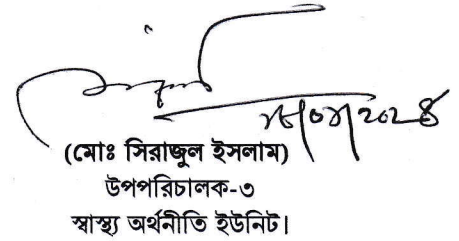 (মোঃ সিরাজুল ইসলাম)
উপপরিচালক-৩
স্বাস্থ্য অর্থনীতি ইউনিট।